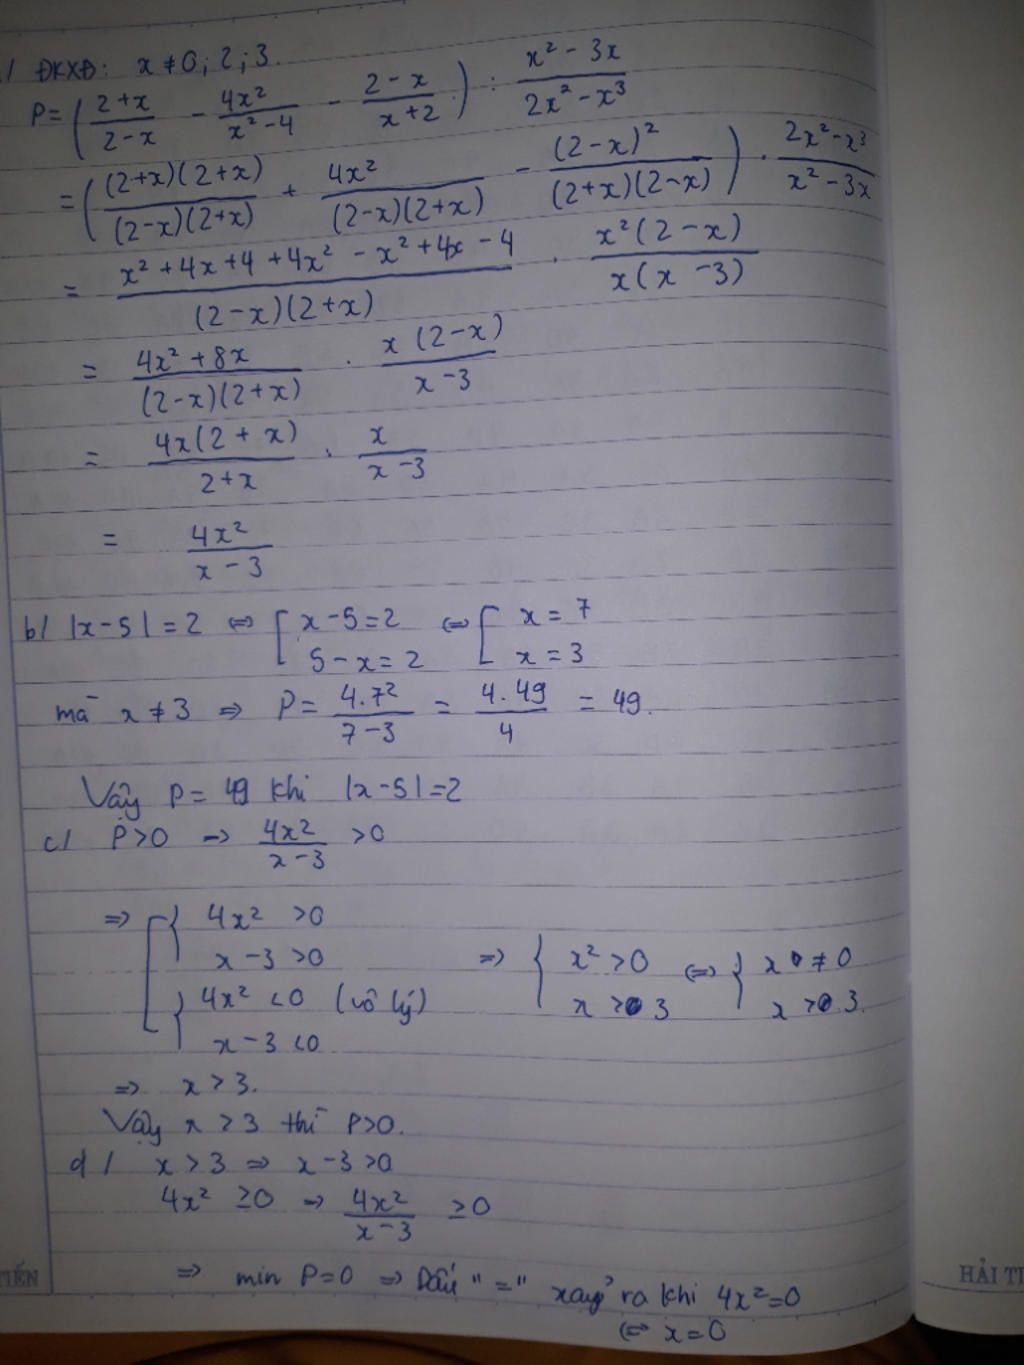 a/ ĐKXĐ: x ≠ 0; 2; 3.
P = ( (2+x)/(2-x) - 4x²/(x²-4) - (2-x)/(x+2) ) : (x²-3x)/(2x²-x³)
= ( (2+x)(2+x)/(2-x)(2+x) + 4x²/(2-x)(2+x) - (2-x)²/(2+x)(2-x) ) . (2x²-x³)/(x²-3x)
= (x²+4x+4+4x²-x²+4x-4)/(2-x)(2+x) . x²(2-x)/x(x-3)
= (4x²+8x)/(2-x)(2+x) . x(2-x)/(x-3)
= 4x(2+x)/(2+x) . x/(x-3)
= 4x²/(x-3)
b/ |x-5|=2 ⇔ [ x-5=2 ; 5-x=2 ⇔ [ x=7 ; x=3
mà x ≠ 3 ⇒ P = 4.7²/(7-3) = 4.49/4 = 49.
Vậy P = 49 khi |x-5|=2
c/ P>0 ⇒ 4x²/(x-3) >0
⇒ [ { 4x² >0 ; x-3 >0 ; { 4x² <0 (vô lý) ; x-3 <0 ⇒ { x² >0 ; x > 3 ⇔ { x ≠ 0 ; x > 3.
⇒ x > 3.
Vậy x > 3 thì P>0.
d/ x > 3 ⇒ x-3 >0
4x² ≥0 ⇒ 4x²/(x-3) ≥0
⇒ min P=0 ⇒ Dấu "=" xảy ra khi 4x²=0
⇔ x=0
TIẾN
HẢI TI